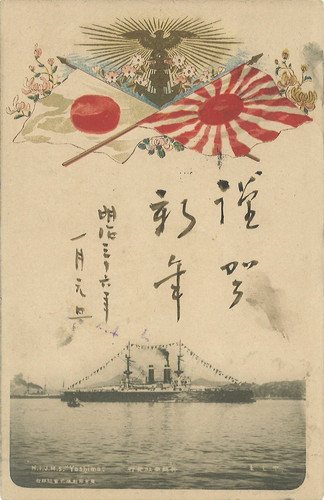 謹賀
新年
明治三十六年
一月元旦
H.I.J.M.S. "Yashima"